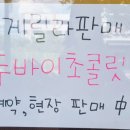 게릴라판매
두바이초콜릿
예약, 현장 판매 中